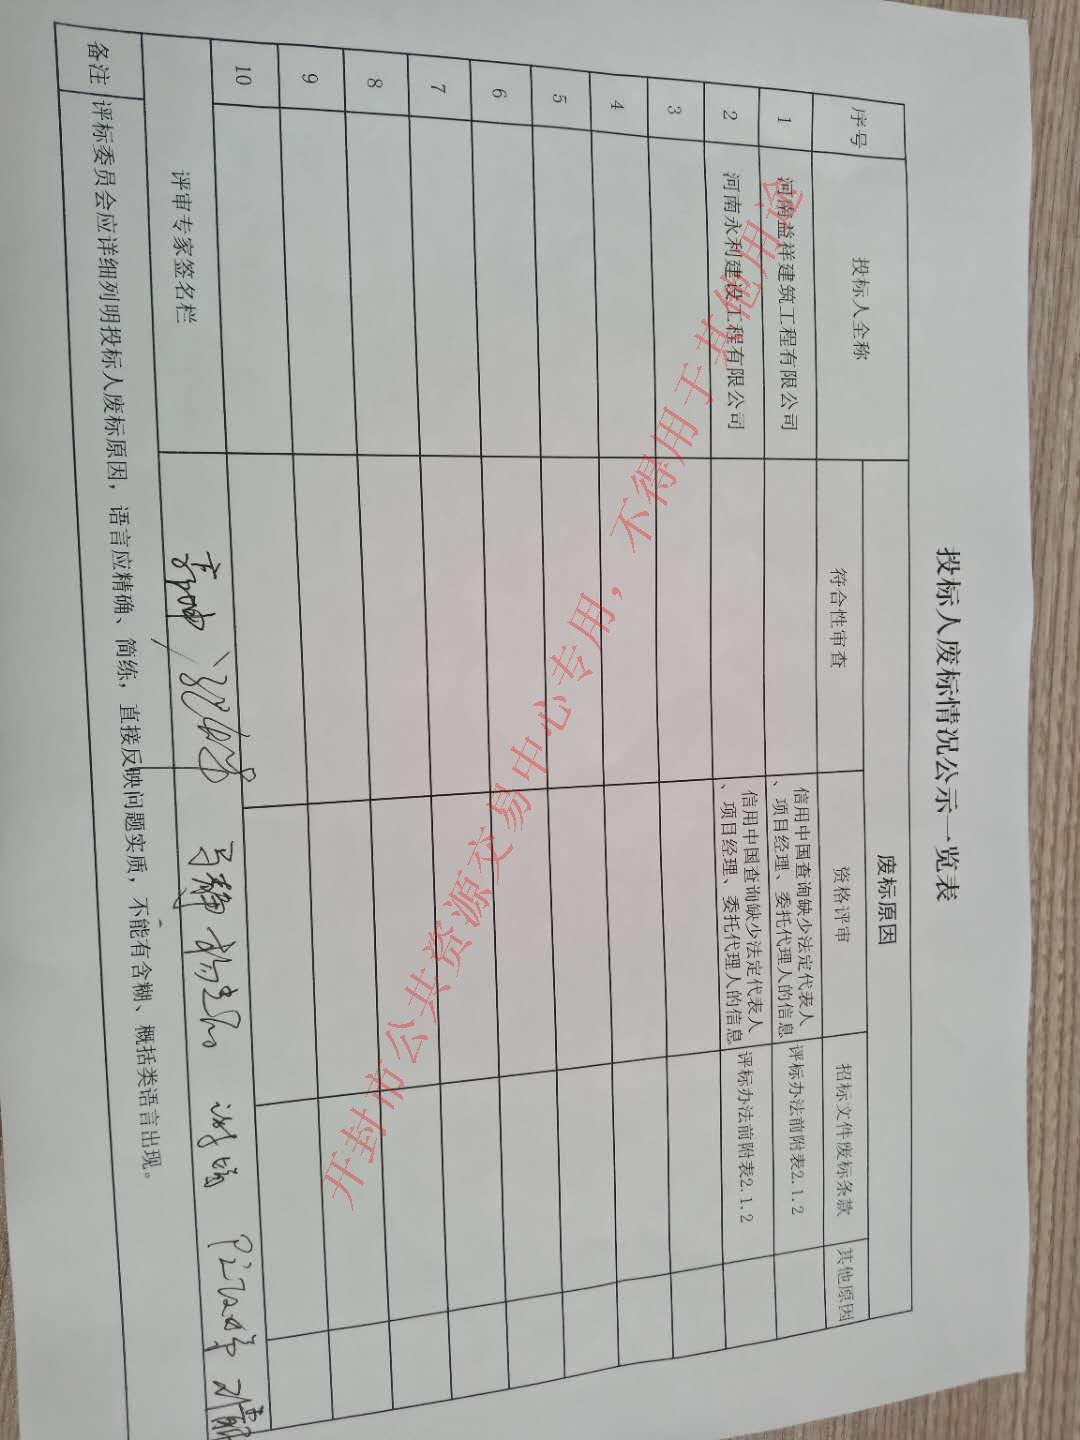 投标人废标情况公示一览表
序号 投标人全称 废标原因
符合性审查 资格评审 招标文件废标条款 其他原因
1 河南益祥建筑工程有限公司 信用中国查询缺少法定代表人、项目经理、委托代理人的信息 评标办法前附表2.1.2
2 河南永利建设工程有限公司 信用中国查询缺少法定代表人、项目经理、委托代理人的信息 评标办法前附表2.1.2
3
4
5
6
7
8
9
10
评审专家签名栏
备注 评标委员会应详细列明投标人废标原因，语言应精确、简练，直接反映问题实质，不能有含糊、概括类语言出现。
开封市公共资源交易中心专用，不得用于其他用途